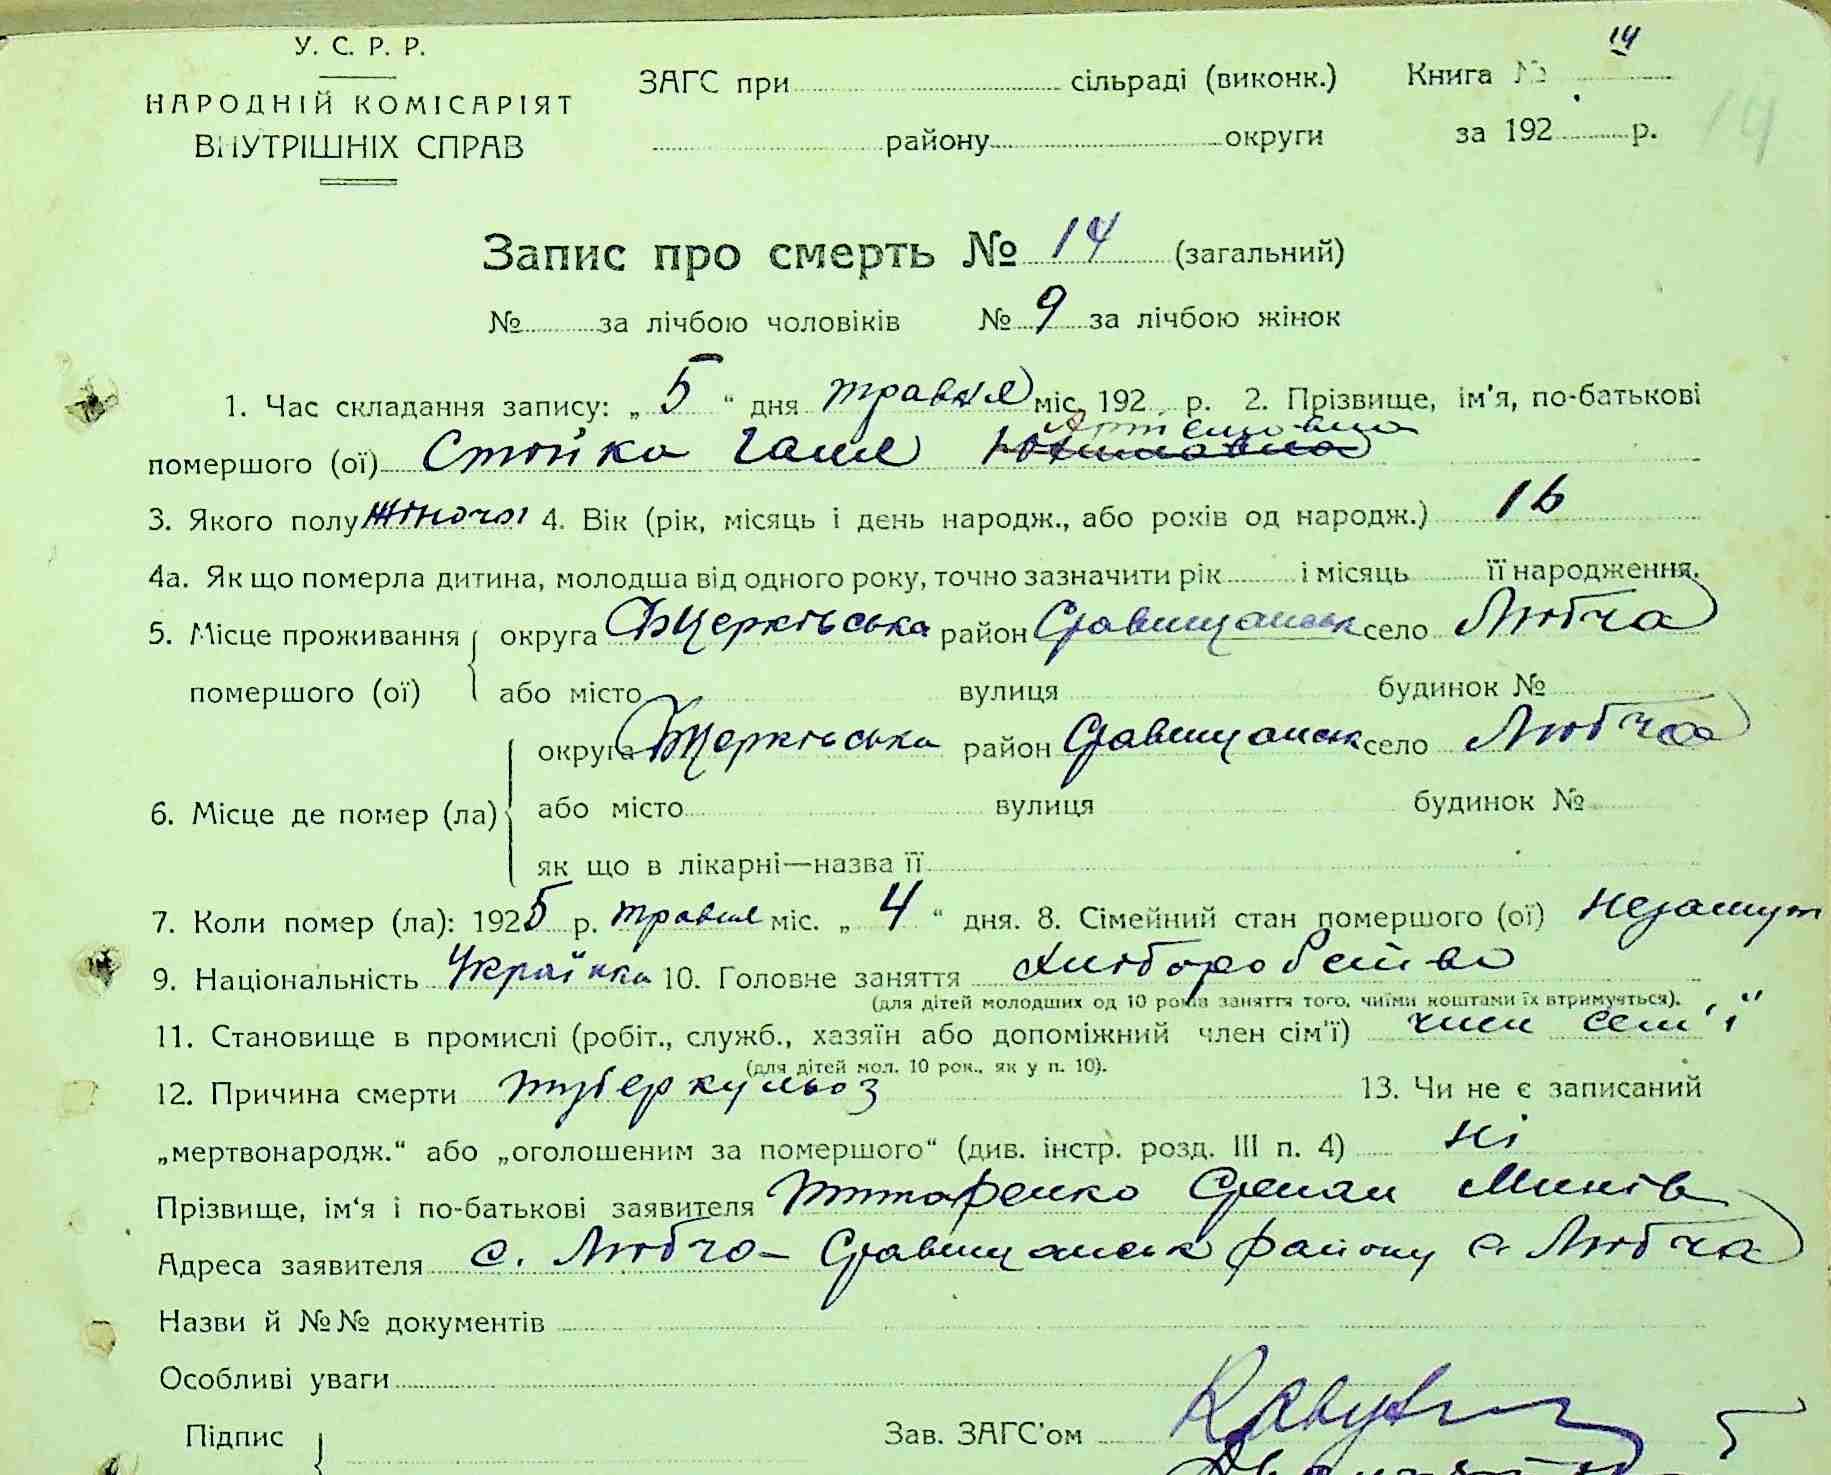 У. С. Р. Р.
НАРОДНІЙ КОМІСАРІЯТ
ВНУТРІШНІХ СПРАВ
ЗАГС при сільраді (виконк.)
району округи
Книга № 14
за 192 р.
14
Запис про смерть № 14 (загальний)
№ за лічбою чоловіків № 9 за лічбою жінок
1. Час складання запису: „ 5 “ дня травня міс. 192 р. 2. Прізвище, ім'я, по-батькові
Артемовна
помершого (ої) Стойка Ганя
3. Якого полу жіночої 4. Вік (рік, місяць і день народж., або років од народж.) 16
4а. Як що померла дитина, молодша від одного року, точно зазначити рік і місяць її народження.
5. Місце проживання помершого (ої) округа Бцерківська район Ставищанськ село Любча
або місто вулиця будинок №
6. Місце де помер (ла) округа Бцерківська район Ставищанськ село Любча
або місто вулиця будинок №
як що в лікарні—назва її
7. Коли помер (ла): 1925 р. травня міс. „ 4 “ дня. 8. Сімейний стан помершого (ої) незамуж
9. Національність Українка 10. Головне заняття хліборобство
(для дітей молодших од 10 років заняття того, чиїми коштами їх втримується).
11. Становище в промислі (робіт., служб., хазяїн або допоміжний член сім'ї) член сем'ї
(для дітей мол. 10 рок., як у п. 10).
12. Причина смерти туберкульоз 13. Чи не є записаний
„мертвонародж.“ або „оголошеним за помершого“ (див. інстр. розд. III п. 4) ні
Прізвище, ім'я і по-батькові заявителя Титаренко Степан
Адреса заявителя с. Любча Ставищанськ району с. Любча
Назви й №№ документів
Особливі уваги
Підпис Зав. ЗАГС'ом